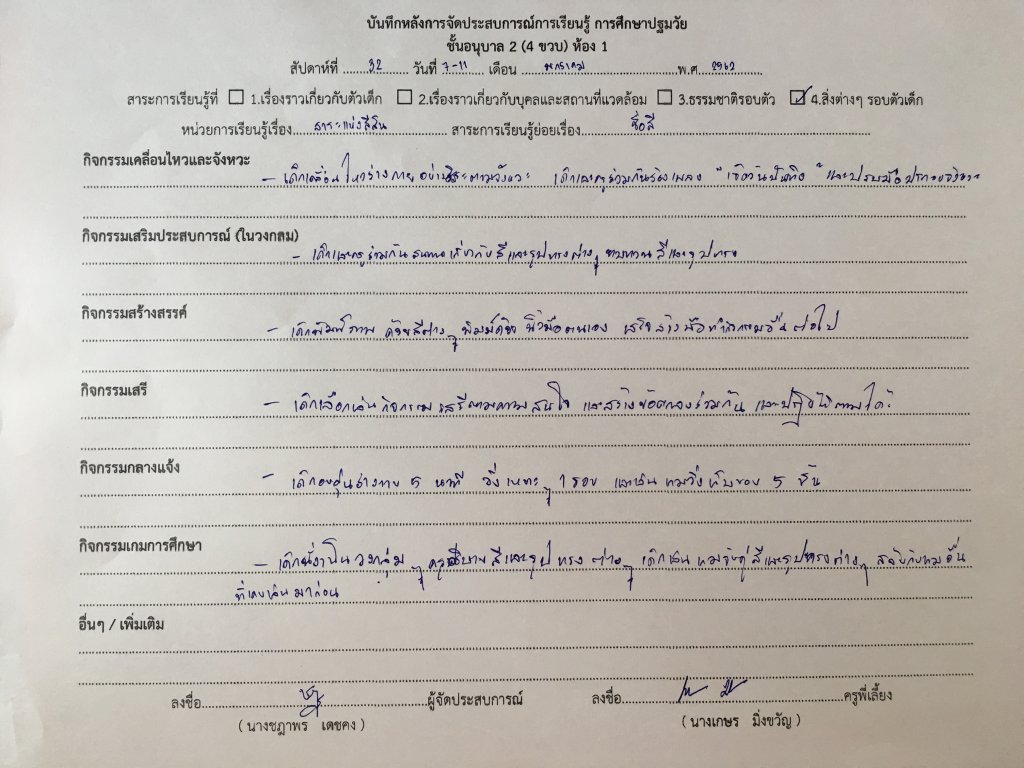 บันทึกหลังการจัดประสบการณ์การเรียนรู้ การศึกษาปฐมวัย
ชั้นอนุบาล 2 (4 ขวบ) ห้อง 1
สัปดาห์ที่ 32 วันที่ 7-11 เดือน มกราคม พ.ศ 2562
สาระการเรียนรู้ที่ ☐ 1.เรื่องราวเกี่ยวกับตัวเด็ก ☐ 2.เรื่องราวเกี่ยวกับบุคลและสถานที่แวดล้อม ☐ 3.ธรรมชาติรอบตัว ☑ 4.สิ่งต่างๆ รอบตัวเด็ก
หน่วยการเรียนรู้เรื่อง สาระแห่งสีสัน สาระการเรียนรู้ย่อยเรื่อง ชื่อสี
กิจกรรมเคลื่อนไหวและจังหวะ
- เด็กเคลื่อนไหวร่างกายอย่างอิสระตามจังหวะ เด็กและครูร่วมกันร้องเพลง " " และปรบมือประกอบจังหวะ
กิจกรรมเสริมประสบการณ์ (ในวงกลม)
- เด็กและครูร่วมกันสนทนาเกี่ยวกับสีและรูปทรงต่างๆ ทบทวนสีและรูปทรง
กิจกรรมสร้างสรรค์
- เด็กพิมพ์ภาพ ด้วยสีต่างๆ พิมพ์ด้วย นิ้วมือตนเอง เสร็จล้างมือทำกิจกรรมอื่นต่อไป
กิจกรรมเสรี
- เด็กเลือกเล่นกิจกรรมเสรีตามความสนใจ และสร้างข้อตกลงร่วมกัน และปฏิบัติตามได้
กิจกรรมกลางแจ้ง
- เด็กอบอุ่นร่างกาย 5 นาที วิ่งเหยาะๆ 1 รอบ และเล่นเกมวิ่งเก็บของ 5 ชิ้น
กิจกรรมเกมการศึกษา
- เด็กนั่งเป็นวงกลุ่มๆ ครูอธิบายสีและรูปทรงต่างๆ เด็กเล่นเกมจับคู่สีและรูปทรงต่างๆ สลับกับเกมอื่น
ที่เคยเล่นมาก่อน
อื่นๆ / เพิ่มเติม
ลงชื่อ ผู้จัดประสบการณ์ ลงชื่อ ครูพี่เลี้ยง
( นางชฎาพร เดชคง ) ( นางเกษร มิ่งขวัญ )